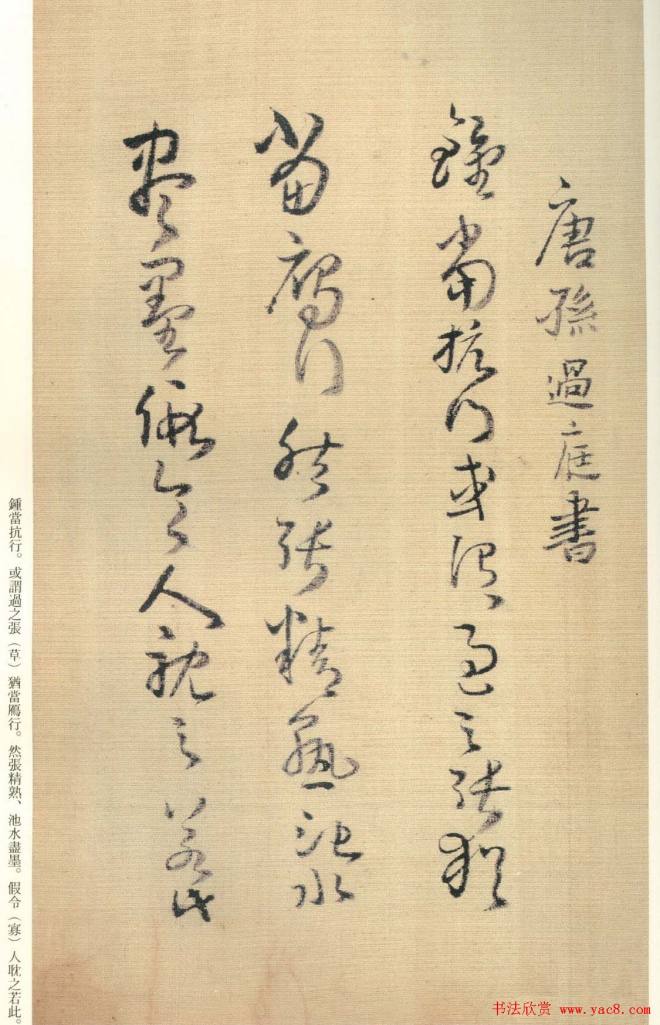 唐孫過庭書
鍾當抗行或謂過之張猶
當鴈行然張精熟池水
盡墨假令人耽之若此
鍾當抗行。或謂過之張（草）猶當鴈行。然張精熟、池水盡墨。假令（寡）人耽之若此。
书法欣赏 www.yac8.com